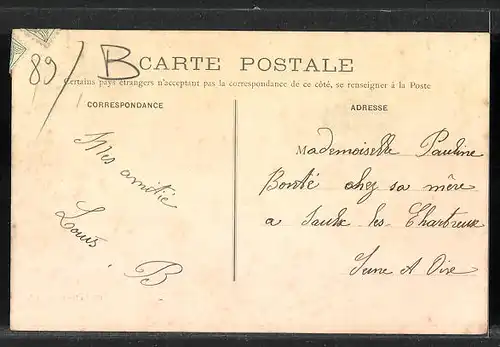 89/ B CARTE POSTALE
Certains pays étrangers n'acceptant pas la correspondance de ce côté, se renseigner à la Poste
CORRESPONDANCE
Mes amitié
Louis. B
ADRESSE
Mademoiselle Pauline
Bonté chez sa mère
a Saulx les Chartreux
Seine et Oise